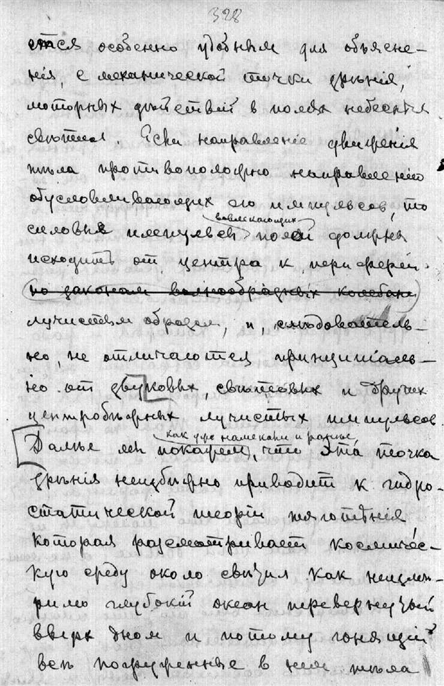 328
ется особенно удобным для объясне-
нія, с механической точки зрѣнія,
моторных дѣйствій в полях небесных
свѣтил. Если направленіе движенія
тѣла противоположно направленію
обусловливающих его импульсов, то
силовые импульсы вовлекающих полей должны
исходить от центра к периферіи
по законам волнообразных колебан
лучистым образом, и, слѣдователь-
но, не отличаются принципіаль-
но от звуковых, свѣтовых и других
центробѣжных лучистых импульсов.
Далѣе мы покажем, как уже намекали и раньше, что эта точка
зрѣнія неизбѣжно приводит к гидро-
статической теоріи тяготѣнія
которая разсматривает космичес-
кую среду около свѣтил как неизмѣ-
римо глубокій океан перевернутый
вверх дном и потому гонящій
всѣ погруженные в нем тѣла